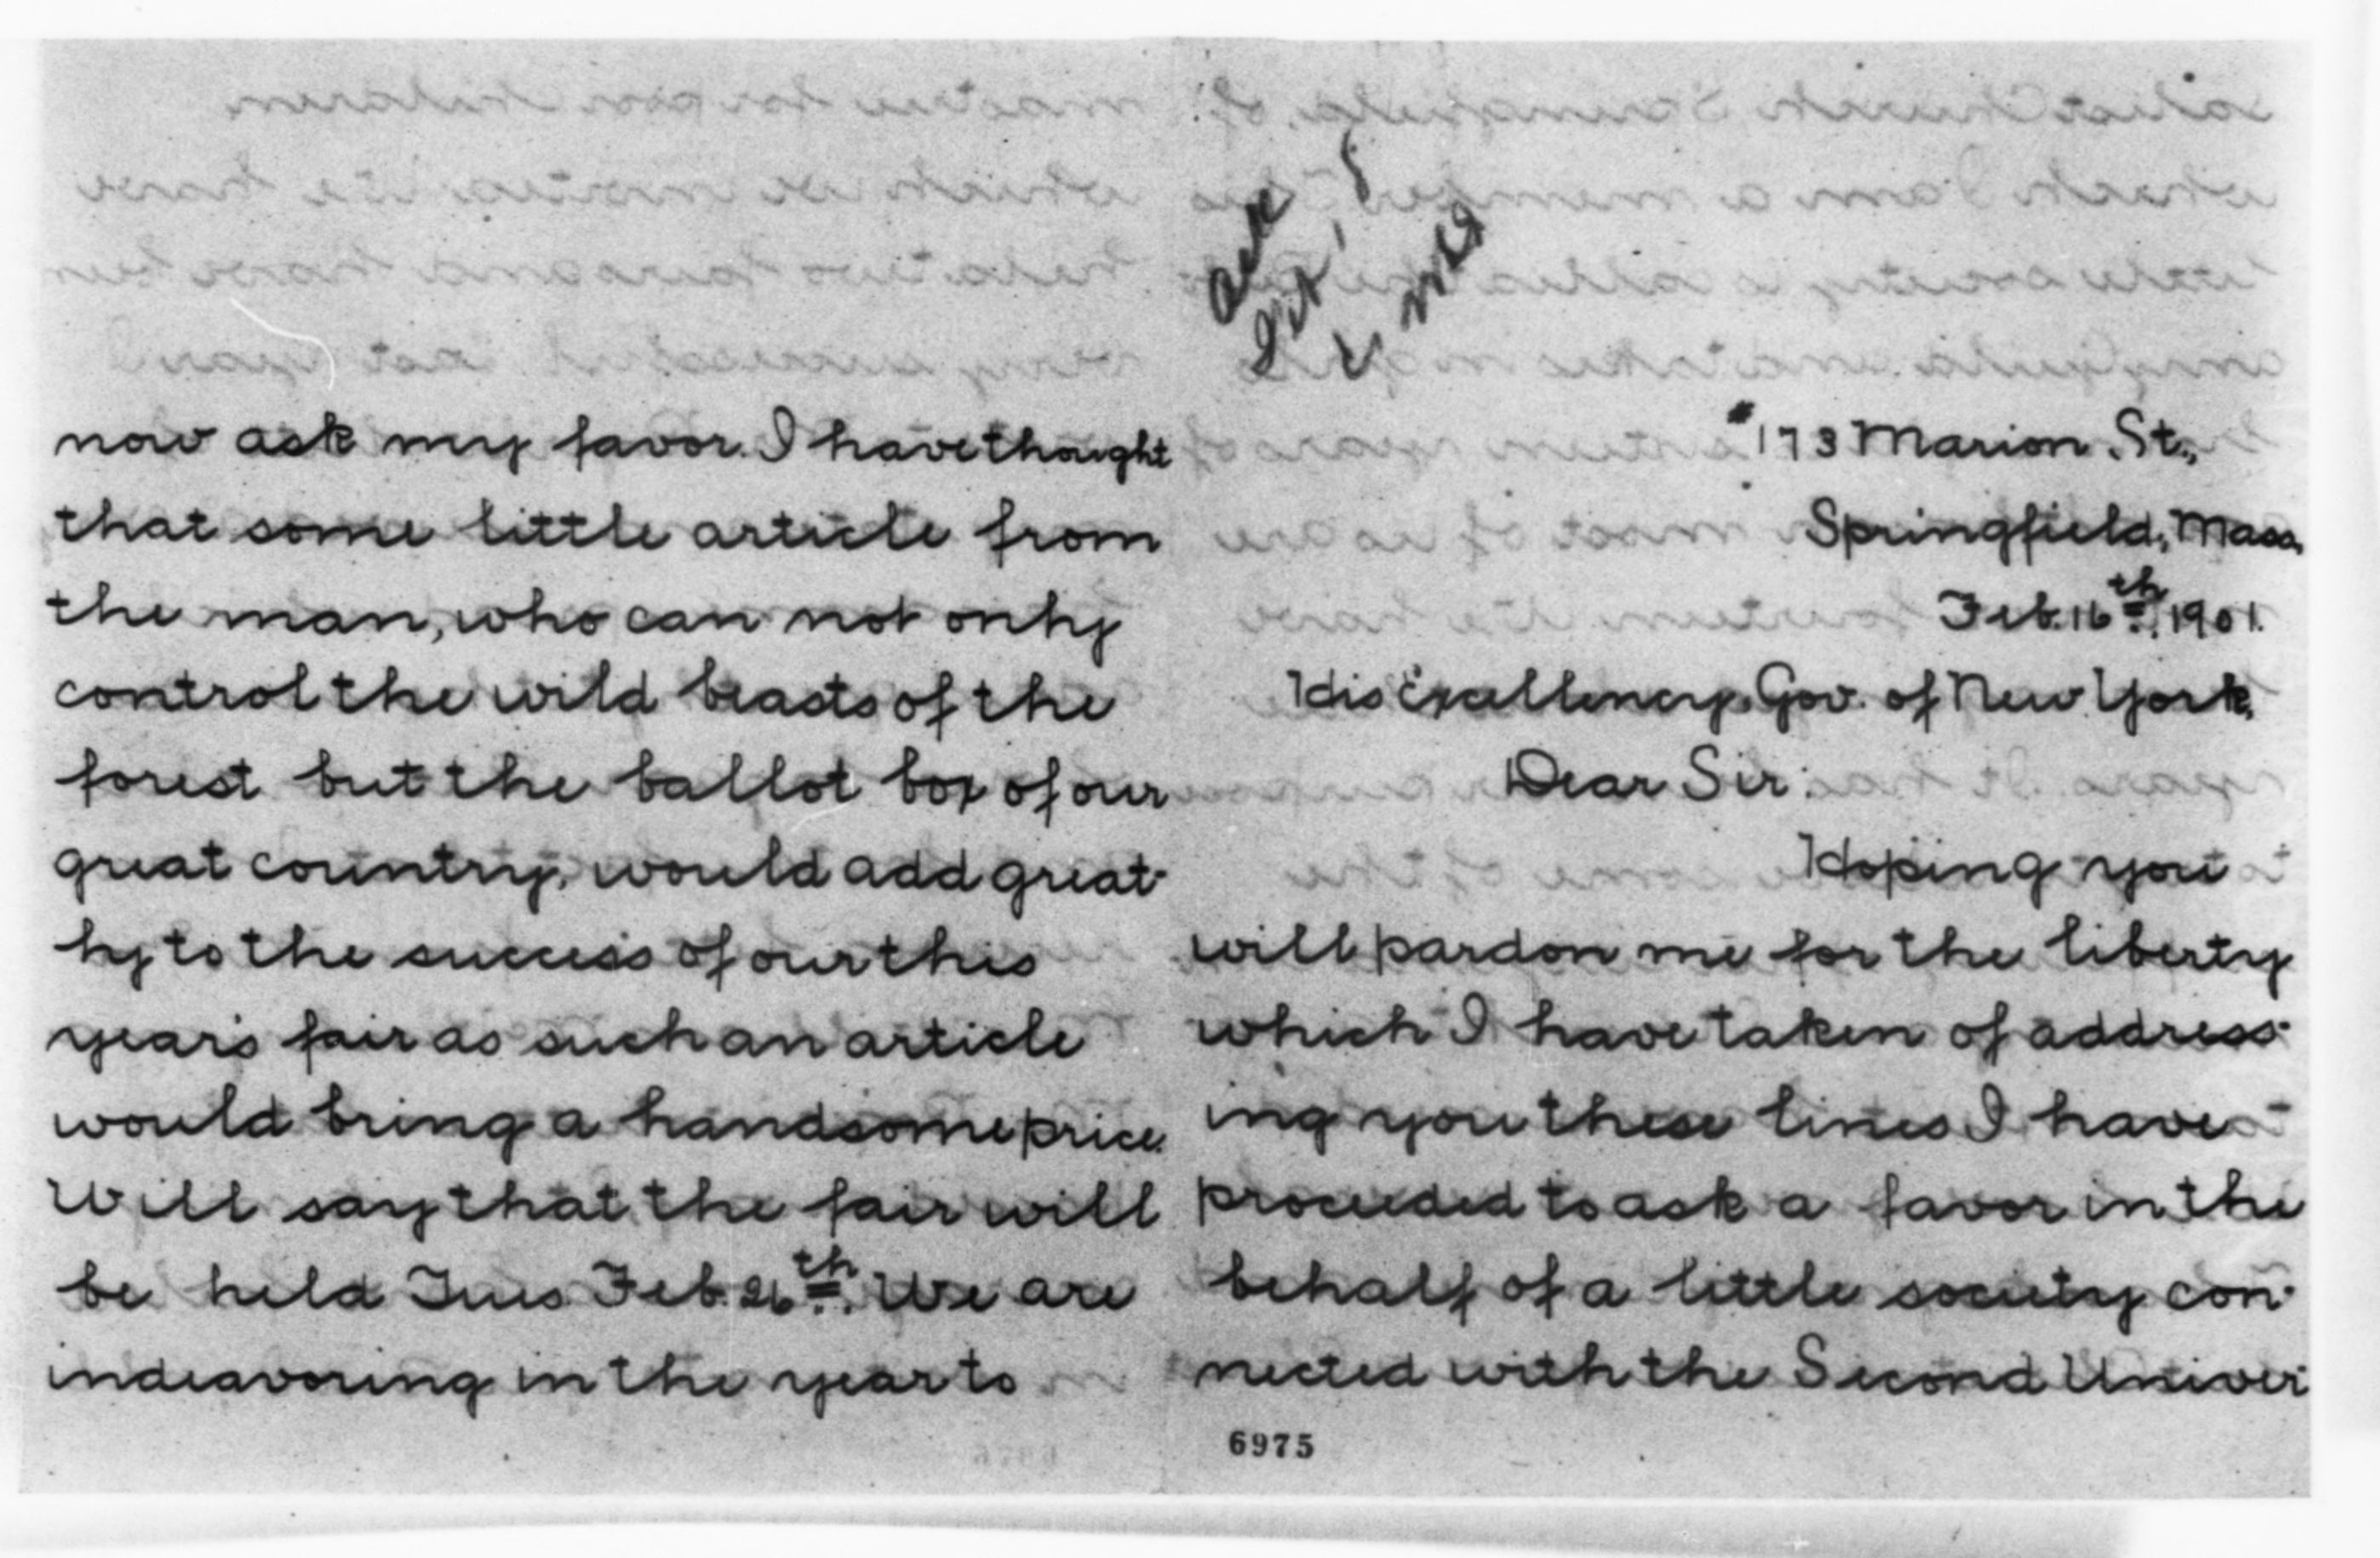 #173 Marion St.,
Springfield, Mass.
Feb. 16th., 1901.
His Excellency, Gov. of New York,
Dear Sir:
Hoping you
will pardon me for the liberty
which I have taken of address-
ing you these lines I have
proceeded to ask a favor in the
behalf of a little society con-
nected with the Second Univer
6975
now ask my favor. I have thought
that some little article from
the man, who can not only
control the wild beasts of the
forest but the ballot box of our
great country, would add great-
ly to the success of our this
year's fair as such an article
would bring a handsome price.
Will say that the fair will
be held Tues Feb. 26th.. We are
indeavoring in the year to